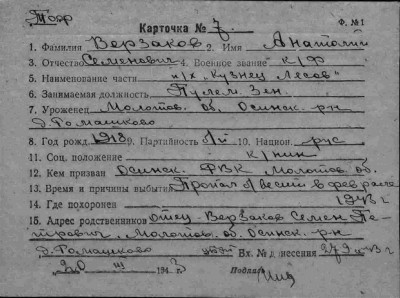 Ф. №1
Карточка № 7.
1. Фамилия Верзаков 2. Имя Анатолий
3. Отчество Семенович 4. Военное звание к/ф
5. Наименование части п/х "Кузнец Лесов"
6. Занимаемая должность Пулем. Зен.
7. Уроженец Молотов. об. Осинск. р-н
д. Ромашково
8. Год рожд 1918 9. Партийность б/п 10. Национ. рус
11. Соц. положение к/нин
12. Кем призван Осинск. РВК Молотов. об.
13. Время и причины выбытия Пропал б/вести в феврале
14. Где похоронен 1943 г
15. Адрес родственников Отец - Верзаков Семен Пе-
трович, Молотов. об. Осинск. р-н
д. Ромашково Вх. № донесения 379 43 г
20 III 194 3 Подпись